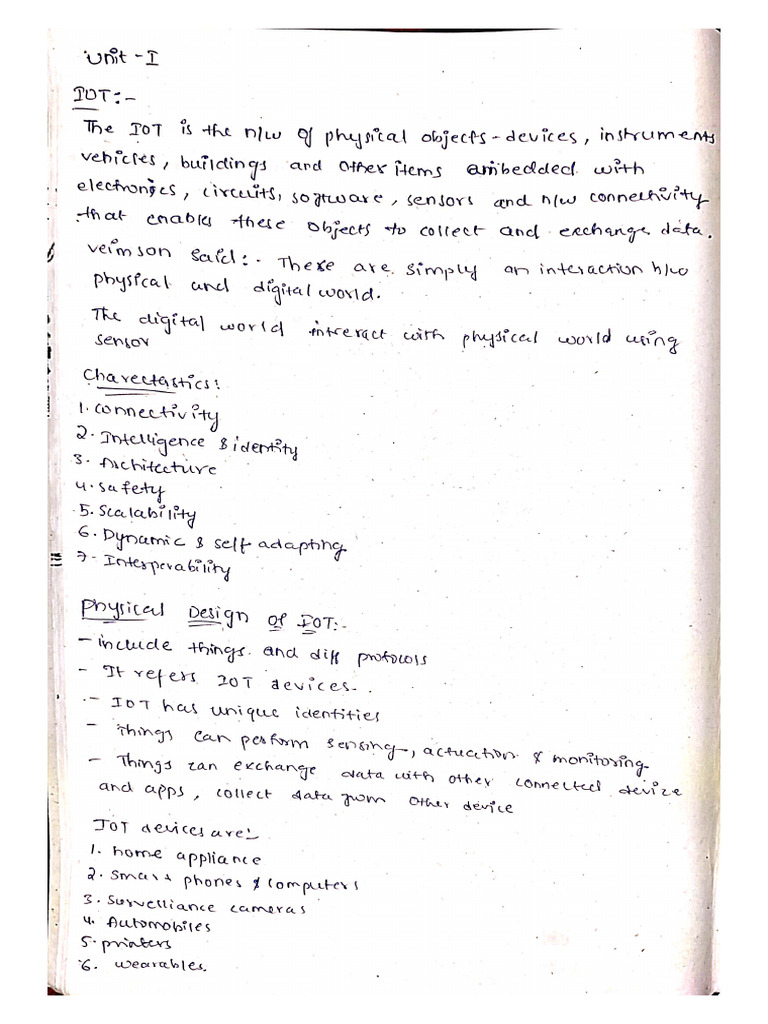 Unit - I
IOT:-
The IOT is the n/w of physical objects - devices, instruments
vehicles, buildings and other items ambedded with
electronics, circuits, software, sensors and n/w connectivity
that enables these objects to collect and exchange data.
veimson said:- These are simply an interaction b/w
physical and digital world.
The digital world interact with physical world using
sensor
Charectastics:
1. connectivity
2. Intelligence & identity
3. Architecture
4. safety
5. Scalability
6. Dynamic & self adapting
7. Interperability
Physical Design of IOT:-
- include things and diff protocols
- It refers IOT devices.
- IOT has unique identities
- Things can perform sensing, actuation & monitoring
- Things can exchange data with other connected device
and apps, collect data from other device
IOT devices are:-
1. home appliance
2. smart phones & computers
3. survelliance cameras
4. Automobiles
5. printers
6. wearables.